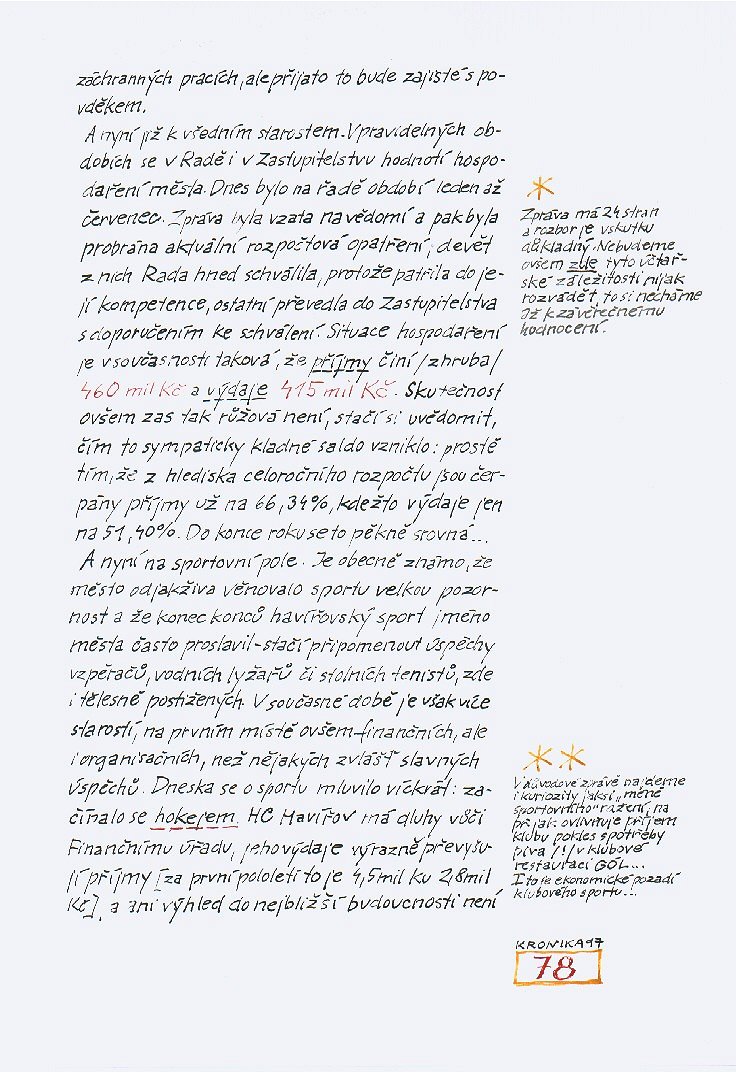 záchranných pracích, ale přijato to bude zajisté s po-
vděkem.
A nyní již k všedním starostem. V pravidelných ob-
dobích se v Radě i v Zastupitelstvu hodnotí hospo-
daření města. Dnes bylo na řadě období leden až
červenec. Zpráva byla vzata na vědomí a pak byla
probrána aktuální rozpočtová opatření; devět
z nich Rada hned schválila, protože patřila do je-
jí kompetence, ostatní převedla do Zastupitelstva
s doporučením ke schválení. Situace hospodaření
je v současnosti taková, že příjmy činí /zhruba/
460 mil Kč a výdaje 415 mil Kč. Skutečnost
ovšem zas tak růžová není, stačí si uvědomit,
čím to sympaticky kladné saldo vzniklo: prostě
tím, že z hlediska celoročního rozpočtu jsou čer-
pány příjmy už na 66,34%, kdežto výdaje jen
na 51,40%. Do konce roku se to pěkně srovná...
A nyní na sportovní pole. Je obecně známo, že
město odjakživa věnovalo sportu velkou pozor-
nost a že konec konců havířovský sport jméno
města často proslavil - stačí připomenout úspěchy
vzpěračů, vodních lyžařů či stolních tenistů, zde
i tělesně postižených. V současné době je však více
starostí, na prvním místě ovšem finančních, ale
i organisačních, než nějakých zvlášť slavných
úspěchů. Dneska se o sportu mluvilo víckrát: za-
čínalo se hokejem. HC Havířov má dluhy vůči
Finančnímu úřadu, jeho výdaje výrazně převyšu-
jí příjmy [za první pololetí to je 4,5 mil ku 2,8 mil
Kč], a ani výhled do nejbližší budoucnosti není
*
Zpráva má 24 stran
a rozbor je vskutku
důkladný. Nebudeme
ovšem zde tyto účtař-
ské záležitosti nijak
rozvádět, to si necháme
až k závěrečnému
hodnocení.
* *
V důvodové zprávě najdeme
i kuriozity jaksi "méně
sportovního" ražení, na
př. jak ovlivňuje příjem
klubu pokles spotřeby
piva /!/ v klubové
restauraci GÓL...
I to je ekonomické pozadí
klubového sportu...
KRONIKA 97
78